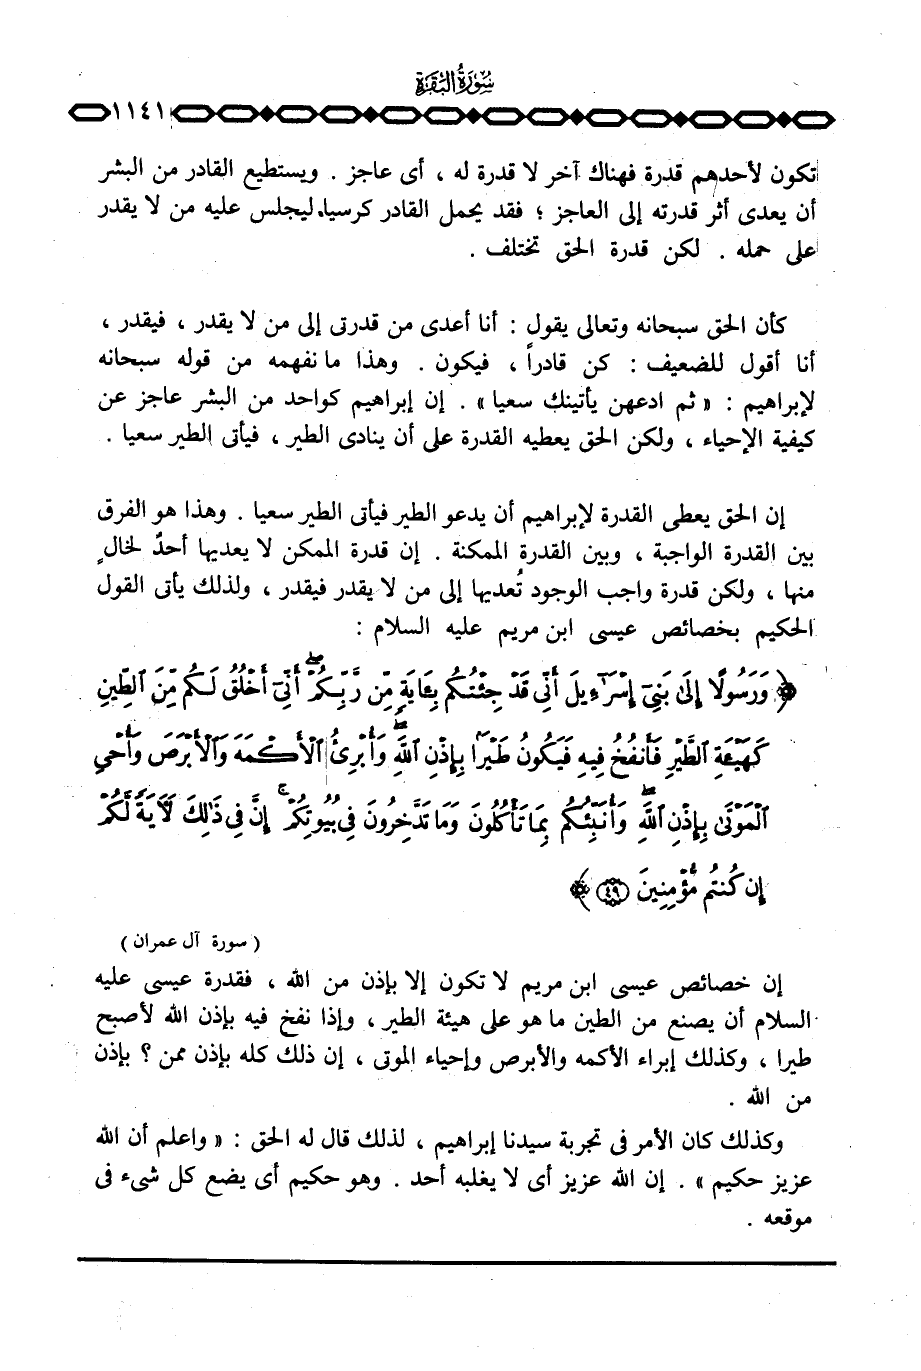 سورة البقرة
١١٤١
تكون لأحدهم قدرة فهناك آخر لا قدرة له ، أى عاجز . ويستطيع القادر من البشر
أن يعدى أثر قدرته إلى العاجز ؛ فقد يحمل القادر كرسيا ليجلس عليه من لا يقدر
على حمله . لكن قدرة الحق تختلف .
كأن الحق سبحانه وتعالى يقول : أنا أعدى من قدرتى إلى من لا يقدر ، فيقدر ،
أنا أقول للضعيف : كن قادراً ، فيكون . وهذا ما نفهمه من قوله سبحانه
لإبراهيم : « ثم ادعهن يأتينك سعيا » . إن إبراهيم كواحد من البشر عاجز عن
كيفية الإحياء ، ولكن الحق يعطيه القدرة على أن ينادى الطير ، فيأتى الطير سعيا .
إن الحق يعطى القدرة لإبراهيم أن يدعو الطير فيأتى الطير سعيا . وهذا هو الفرق
بين القدرة الواجبة ، وبين القدرة الممكنة . إن قدرة الممكن لا يعديها أحدٌ لخالٍ
منها ، ولكن قدرة واجب الوجود تُعديها إلى من لا يقدر فيقدر ، ولذلك يأتى القول
الحكيم بخصائص عيسى ابن مريم عليه السلام :
﴿ وَرَسُولًا إِلَىٰ بَنِىٓ إِسْرَٰٓءِيلَ أَنِّى قَدْ جِئْتُكُم بِـَٔايَةٍ مِّن رَّبِّكُمْ ۖ أَنِّىٓ أَخْلُقُ لَكُم مِّنَ ٱلطِّينِ
كَهَيْـَٔةِ ٱلطَّيْرِ فَأَنفُخُ فِيهِ فَيَكُونُ طَيْرًۢا بِإِذْنِ ٱللَّهِ ۖ وَأُبْرِئُ ٱلْأَكْمَهَ وَٱلْأَبْرَصَ وَأُحْىِ
ٱلْمَوْتَىٰ بِإِذْنِ ٱللَّهِ ۖ وَأُنَبِّئُكُم بِمَا تَأْكُلُونَ وَمَا تَدَّخِرُونَ فِى بُيُوتِكُمْ ۚ إِنَّ فِى ذَٰلِكَ لَـَٔايَةً لَّكُمْ
إِن كُنتُم مُّؤْمِنِينَ ﴿٤٩﴾ ﴾
( سورة آل عمران )
إن خصائص عيسى ابن مريم لا تكون إلا بإذن من الله ، فقدرة عيسى عليه
السلام أن يصنع من الطين ما هو على هيئة الطير ، وإذا نفخ فيه بإذن الله لأصبح
طيرا ، وكذلك إبراء الأكمه والأبرص وإحياء الموتى ، إن ذلك كله بإذن ممن ؟ بإذن
من الله .
وكذلك كان الأمر فى تجربة سيدنا إبراهيم ، لذلك قال له الحق : « واعلم أن الله
عزيز حكيم » . إن الله عزيز أى لا يغلبه أحد . وهو حكيم أى يضع كل شىء فى
موقعه .